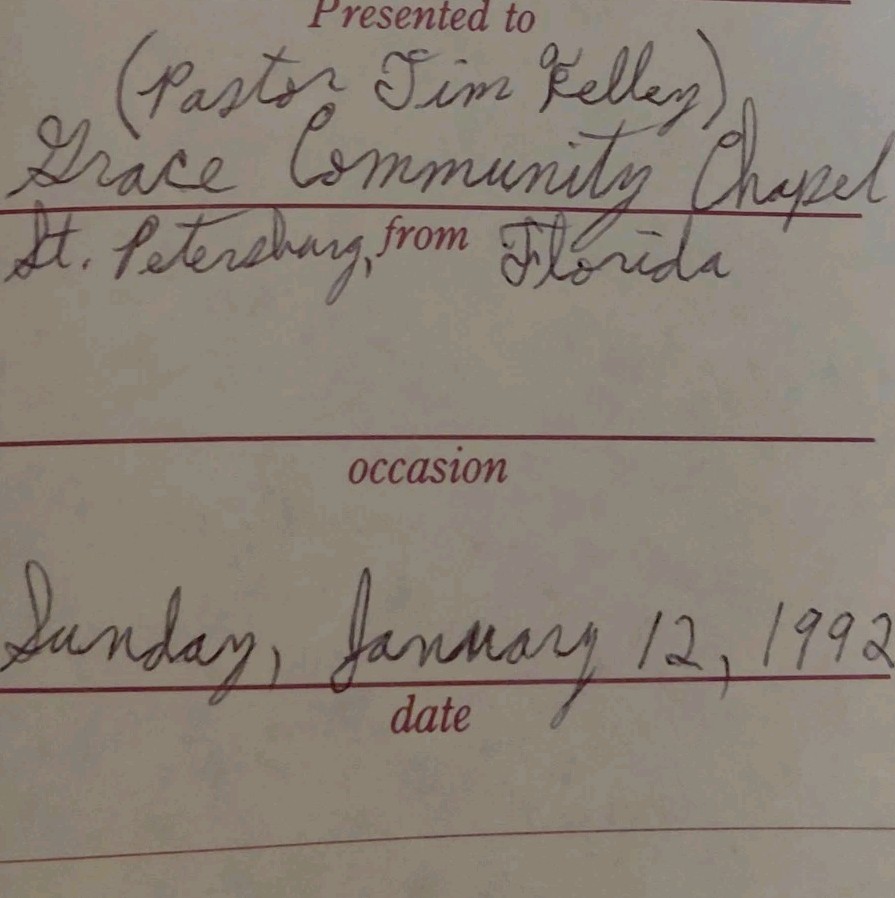 Presented to
(Pastor Jim Kelley)
Grace Community Chapel
from
St. Petersburg, Florida
occasion
Sunday, January 12, 1992
date